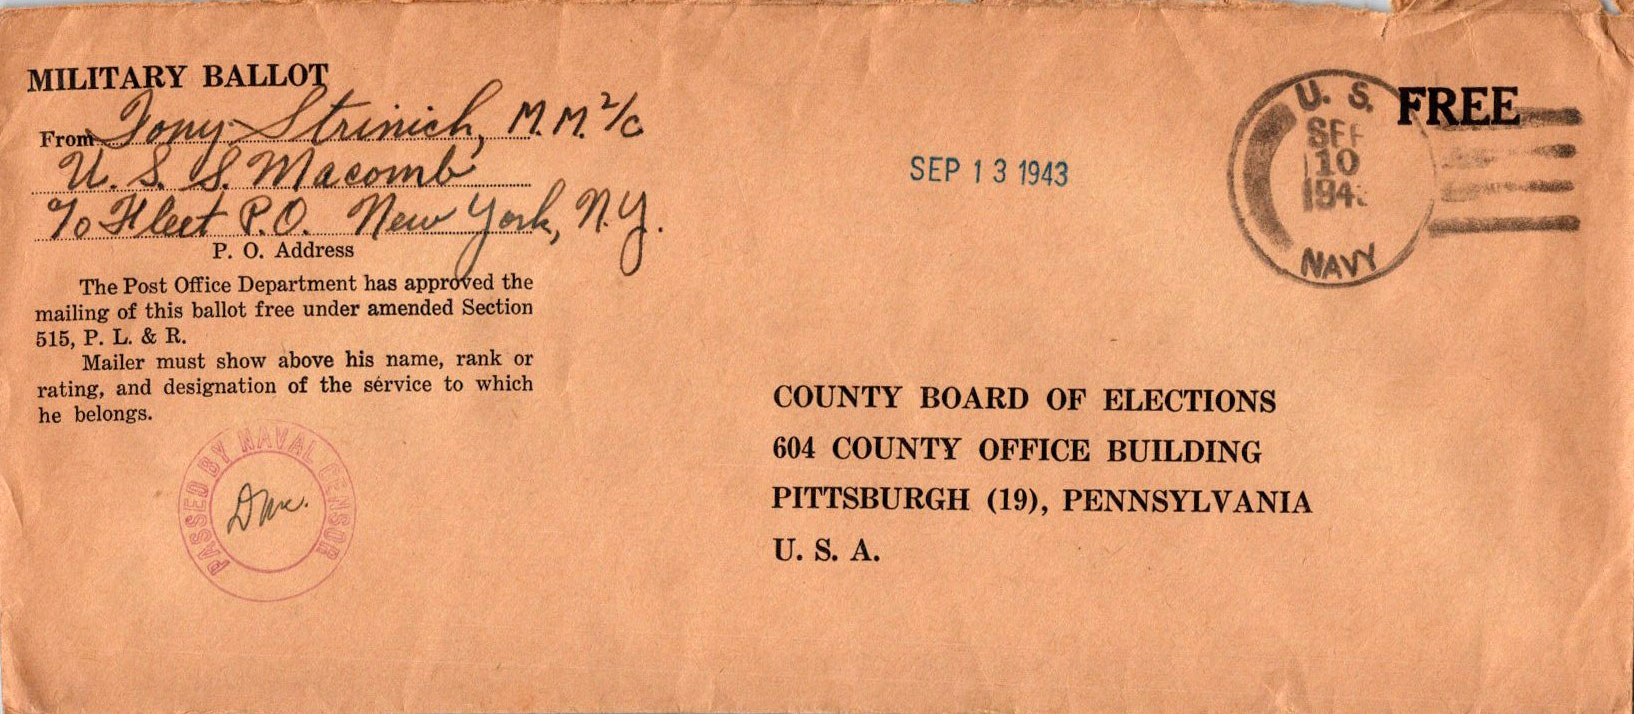 MILITARY BALLOT
From Tony Strinich, M.M. 2/c
U. S. S. Macomb
c/o Fleet P.O. New York, N.Y.
P. O. Address
The Post Office Department has approved the
mailing of this ballot free under amended Section
515, P. L. & R.
Mailer must show above his name, rank or
rating, and designation of the service to which
he belongs.
PASSED BY NAVAL CENSOR
SEP 13 1943
U. S.
SEP
10
194
NAVY
FREE
COUNTY BOARD OF ELECTIONS
604 COUNTY OFFICE BUILDING
PITTSBURGH (19), PENNSYLVANIA
U. S. A.